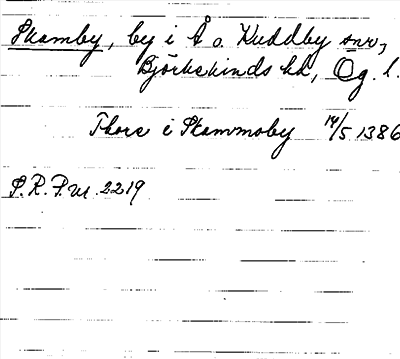 Skamby, by i Å o. Kuddby snr,
Björkekinds hd, Ög. l.
Thore i Skammoby 14/5 1386
S.R.P. nr. 2219